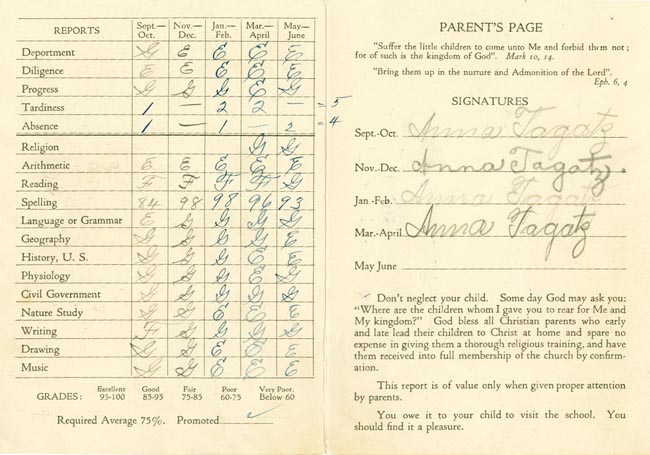 REPORTS Sept.— Oct. Nov.— Dec. Jan.— Feb. Mar.— April May— June
Deportment G E E E E
Diligence E E E E E
Progress G G G E G
Tardiness 1 — 2 2 — = 5
Absence 1 — 1 — 2 = 4
Religion G G
Arithmetic E E E E E
Reading F F F F G
Spelling 84 98 98 96 93
Language or Grammar E G G G G
Geography G G G G E
History, U. S. G G G E E
Physiology G G G E G
Civil Government G G G G G
Nature Study G G E E E
Writing F G G G G
Drawing G G E E E
Music G G E E E
GRADES: Excellent 95-100 Good 85-95 Fair 75-85 Poor 60-75 Very Poor. Below 60
Required Average 75%. Promoted ✓
PARENT'S PAGE
"Suffer the little children to come unto Me and forbid them not;
for of such is the kingdom of God". Mark 10, 14.
"Bring them up in the nurture and Admonition of the Lord".
Eph. 6, 4
SIGNATURES
Sept.-Oct. Anna Tagatz
Nov.-Dec. Anna Tagatz.
Jan.-Feb. Anna Tagatz
Mar.-April Anna Tagatz
May June
Don't neglect your child. Some day God may ask you:
"Where are the children whom I gave you to rear for Me and
My kingdom?" God bless all Christian parents who early
and late lead their children to Christ at home and spare no
expense in giving them a thorough religious training, and have
them received into full membership of the church by confirm-
ation.
This report is of value only when given proper attention
by parents.
You owe it to your child to visit the school. You
should find it a pleasure.